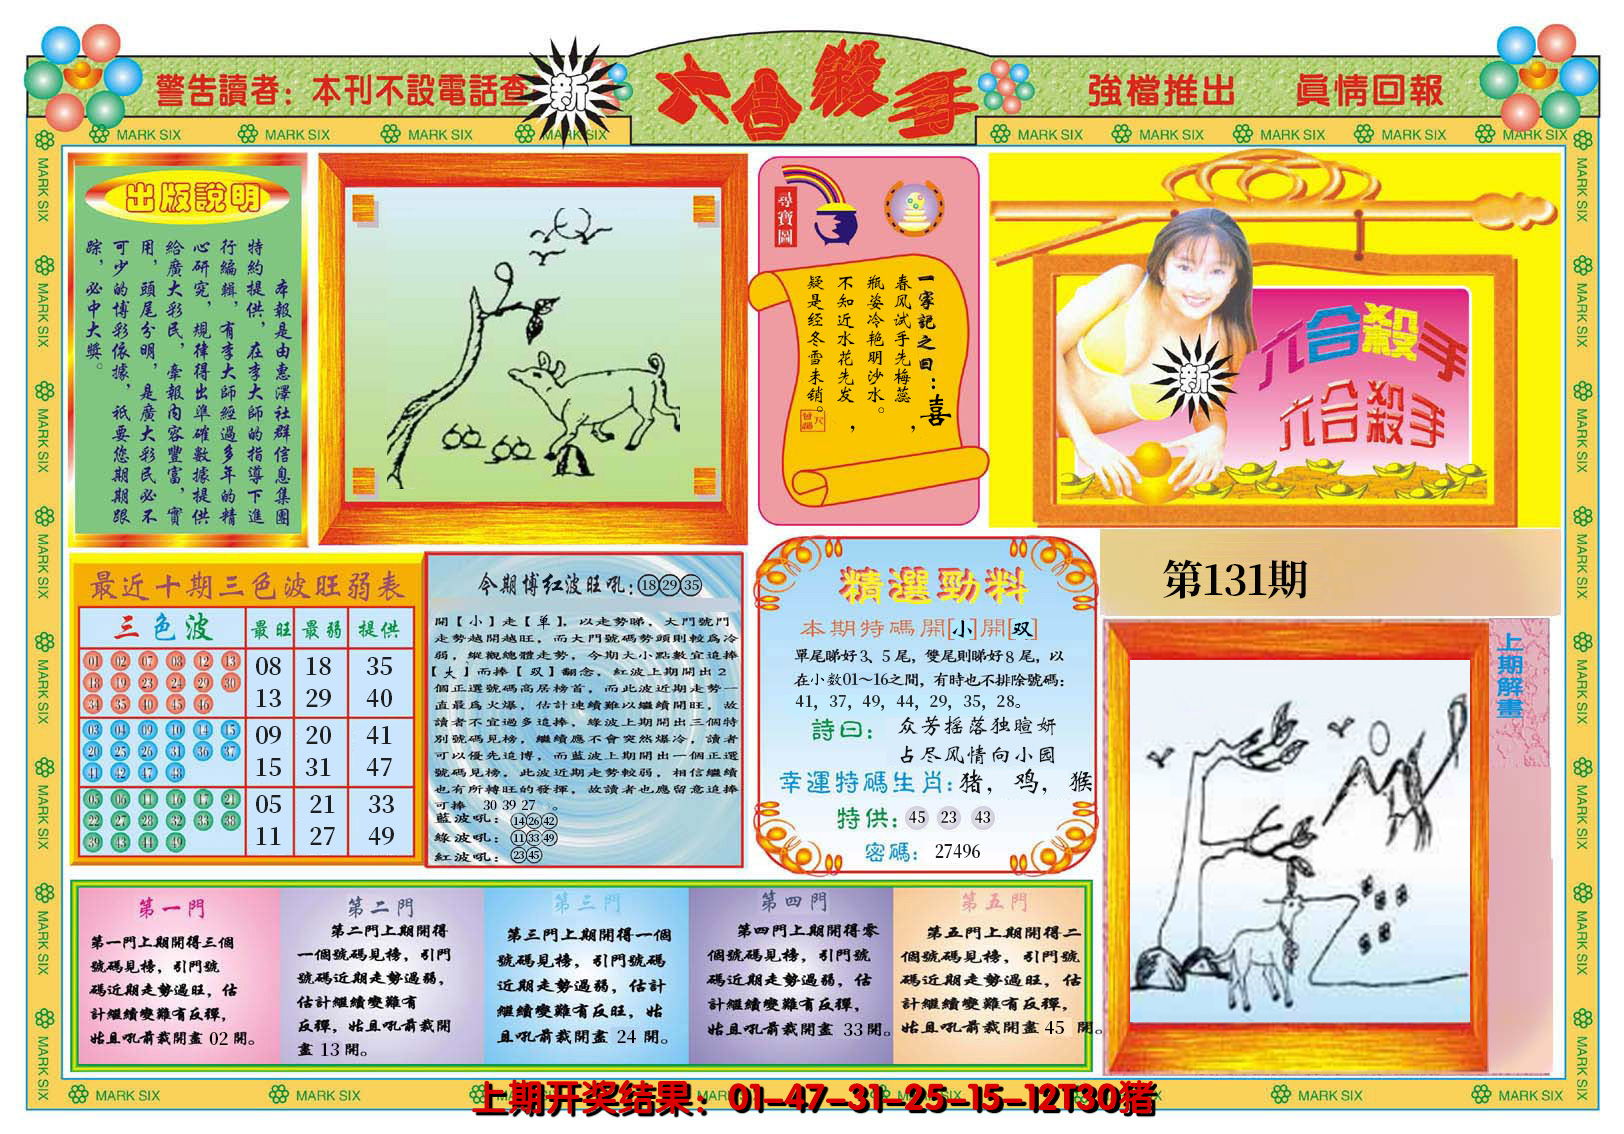 警告讀者：本刊不設電話查
新
六合殺手
強檔推出 眞情回報
MARK SIX
出版說明
本報是由惠澤社群信息集團
特約提供，在李大師的指導下進
行編輯，有李大師經過多年的精
心研究，規律得出準確數據提供
給廣大彩民，牽報內容豐富，實
用，頭尾分明，是廣大彩民必不
可少的博彩依據，祇要您期期跟
踪，必中大獎。
尋寶圖
一家記之曰：喜
春风试手先梅蕊，
瓶姿冷艳明沙水。
不知近水花先发，
疑是经冬雪未销。
六合殺手
六合殺手
新
第131期
上期解畫
最近十期三色波旺弱表
三色波 最旺 最弱 提供
01 02 07 08 12 13
18 19 23 24 29 30
34 35 40 45 46
08 18 35
13 29 40
03 04 09 10 14 15
20 25 26 31 36 37
41 42 47 48
09 20 41
15 31 47
05 06 11 16 17 21
22 27 28 32 33 38
39 43 44 49
05 21 33
11 27 49
今期博红波旺吼：18 29 35
開【小】走【单】，以走勢睇，大門號門
走勢越開越旺，而大門號碼勢頭則較爲冷
弱，縱觀總體走勢，今期大小點數宜追捧
【大】而捧【双】翻念，紅波上期開出2
個正選號碼高居榜首，而此波近期走勢一
直最爲火爆，估計連續難以繼續開旺，故
讀者不宜過多追捧，綠波上期開出三個特
別號碼見榜，繼續應不會突然爆冷，讀者
可以優先追博，而藍波上期開出一個正選
號碼見榜，此波近期走勢較弱，相信繼續
也有所轉旺的發揮，故讀者也應留意追捧
可捧 30 39 27 。
藍波吼：14 26 42
綠波吼：11 33 49
紅波吼：23 45
精選勁料
本期特碼開[小]開[双]
單尾睇好3、5尾，雙尾則睇好8尾，以
在小数01～16之間，有時也不排除號碼：
41，37，49，44，29，35，28。
詩曰： 众芳摇落独暄妍
占尽风情向小园
幸運特碼生肖：猪，鸡，猴
特供：45 23 43
密碼： 27496
第一門
第一門上期開得三個
號碼見榜，引門號
碼近期走勢過旺，估
計繼續變難有反彈，
姑且吼前裁開畫 02 開。
第二門
第二門上期開得
一個號碼見榜，引門
號碼近期走勢過弱，
估計繼續變難有
反彈，姑且吼前裁開
畫 13 開。
第三門
第三門上期開得一個
號碼見榜，引門號碼
近期走勢過弱，估計
繼續變難有反旺，姑
且吼前裁開畫 24 開。
第四門
第四門上期開得零
個號碼見榜，引門號
碼近期走勢過弱，估
計繼續變難有反彈，
姑且吼前裁開畫 33 開。
第五門
第五門上期開得二
個號碼見榜，引門號
碼近期走勢過旺，估
計繼續變難有反彈，
姑且吼前裁開畫 45 開。
上期开奖结果：01-47-31-25-15-12T30猪